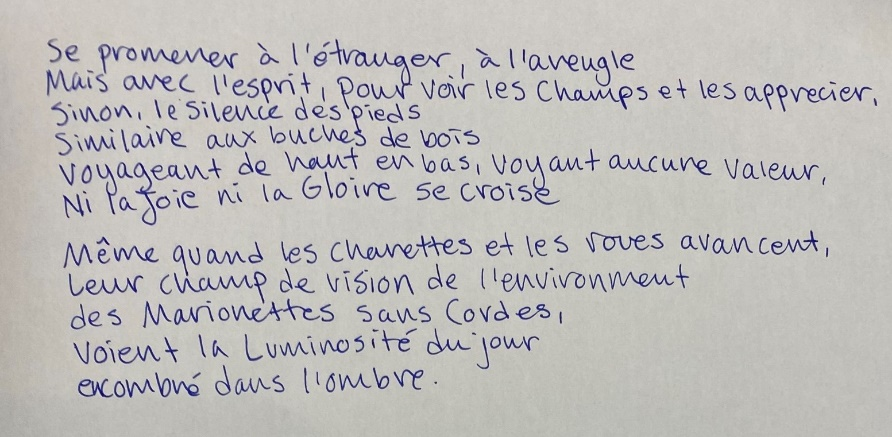 Se promener à l'étranger, à l'aveugle
Mais avec l'esprit, pour voir les Champs et les apprecier,
Sinon, le silence des pieds
Similaire aux buches de bois
Voyageant de haut en bas, voyant aucure valeur,
Ni la joie ni la Gloire se croise
Même quand les charettes et les roues avancent,
Leur champ de vision de l'environment
des Marionettes sans Cordes,
Voient la Luminosité du jour
encombré dans l'ombre.